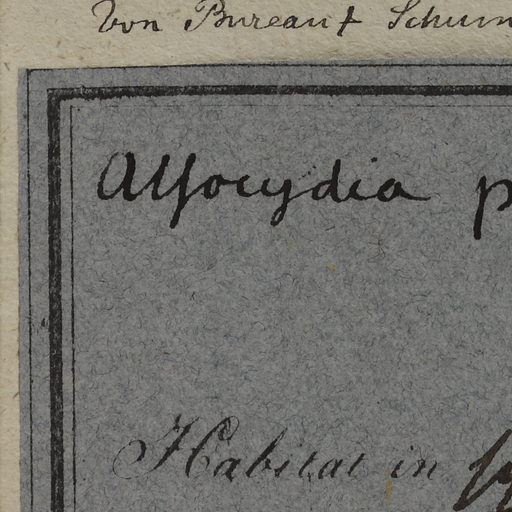 Von Bureau & Schum
Alsocydia p
Habitat in